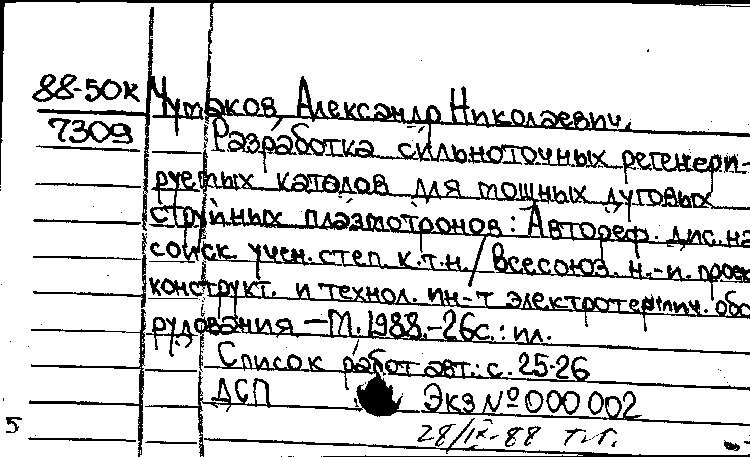 88-50К
7309
Чутаков, Александр Николаевич.
Разработка сильноточных регенери-
руемых катодов для мощных дуговых
струйных плазмотронов: Автореф. дис. на
соиск. учен. степ. к.т.н. / Всесоюз. н.-и. проек
конструкт. и технол. ин-т электротермич. обо
рудования — М. 1988.-26с.: ил.
Список работ авт.: с. 25-26
ДСП Экз № 000 002
28/IX-88
5